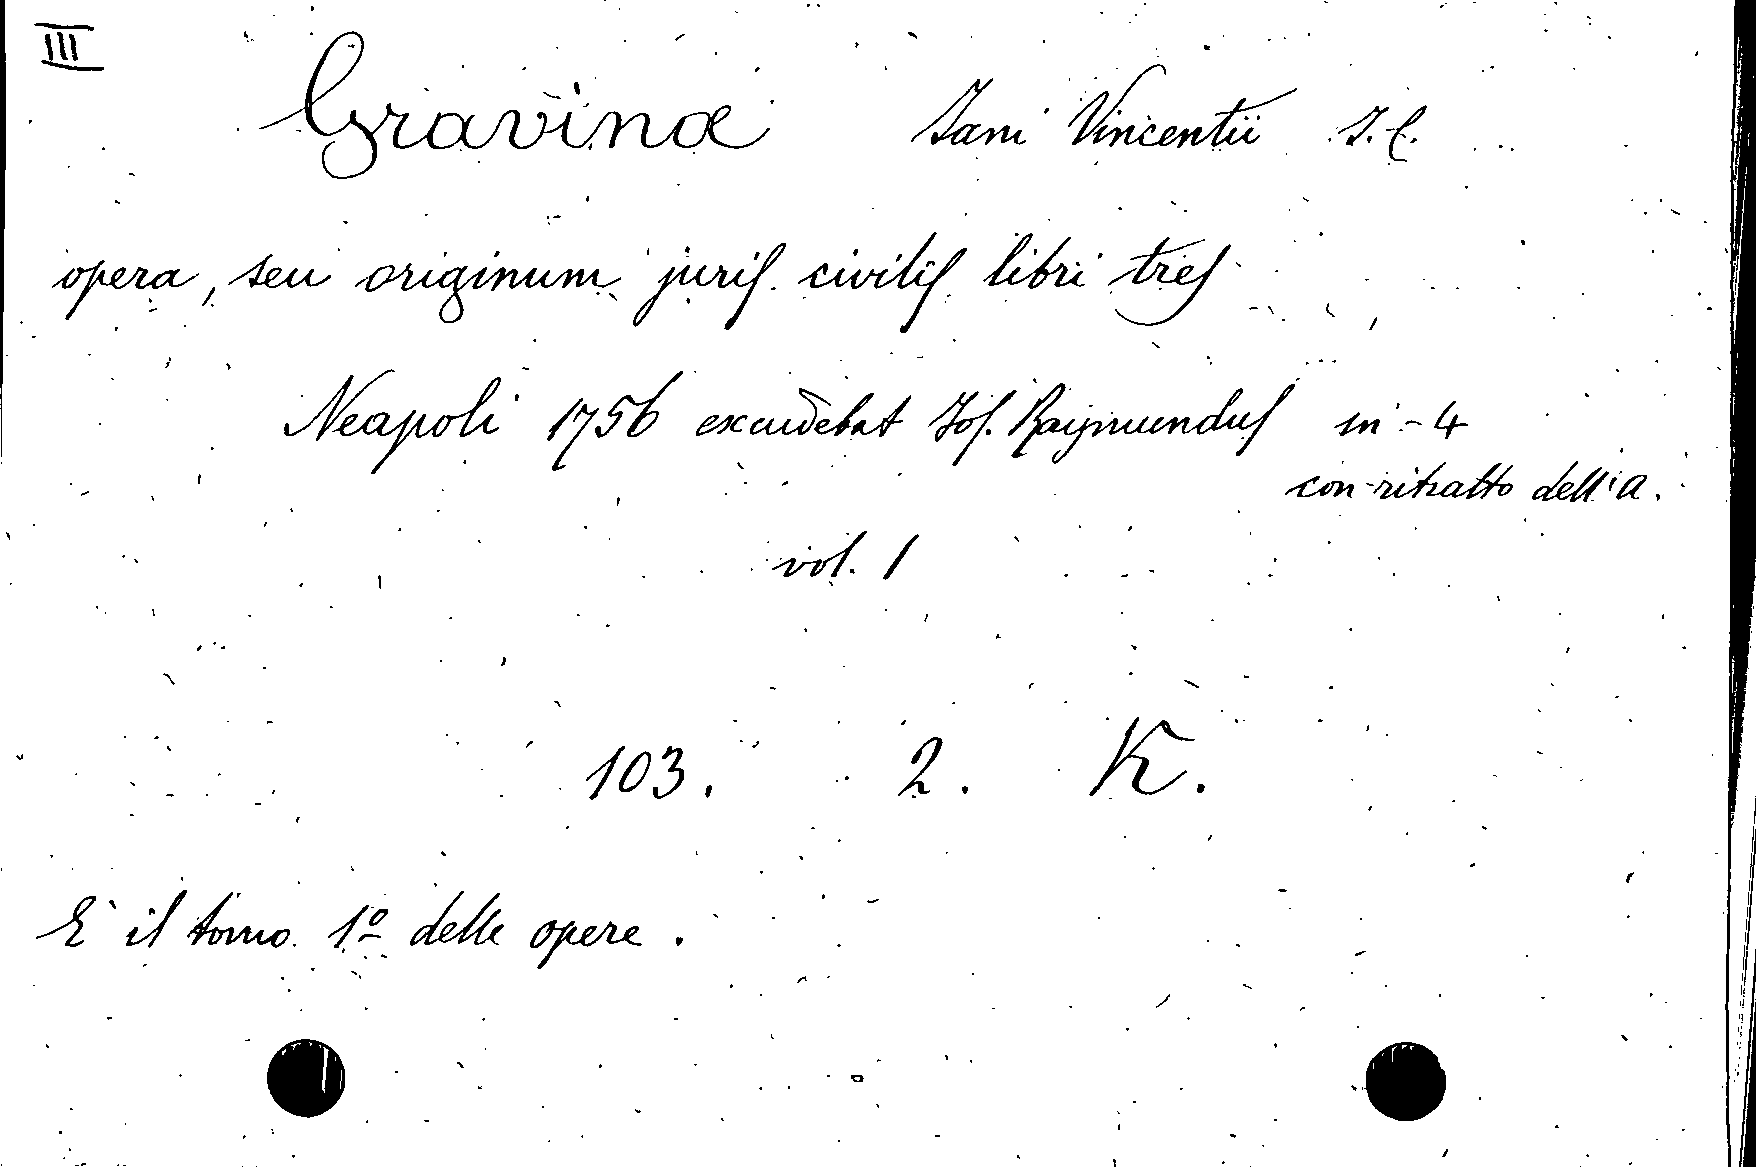 III
Gravinæ Jani Vincentii J.C.
opera, seu originum juris civilis libri tres
Neapoli 1756 excudebat Jos. Raymundus in-4
con ritratto dell'A.
vol. 1
103. 2. K.
E' il tomo 1º delle opere.